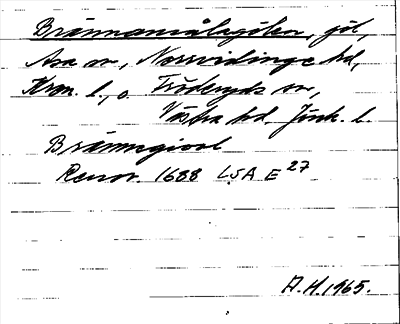 Brännamålagölen, göl,
Asa sn, Norrvidinge hd,
Kron. l., o. Fröderyds sn,
Västra hd, Jönk. l.
Brännegiool
Renov. 1688 LSA E 27
A.H. 1965.